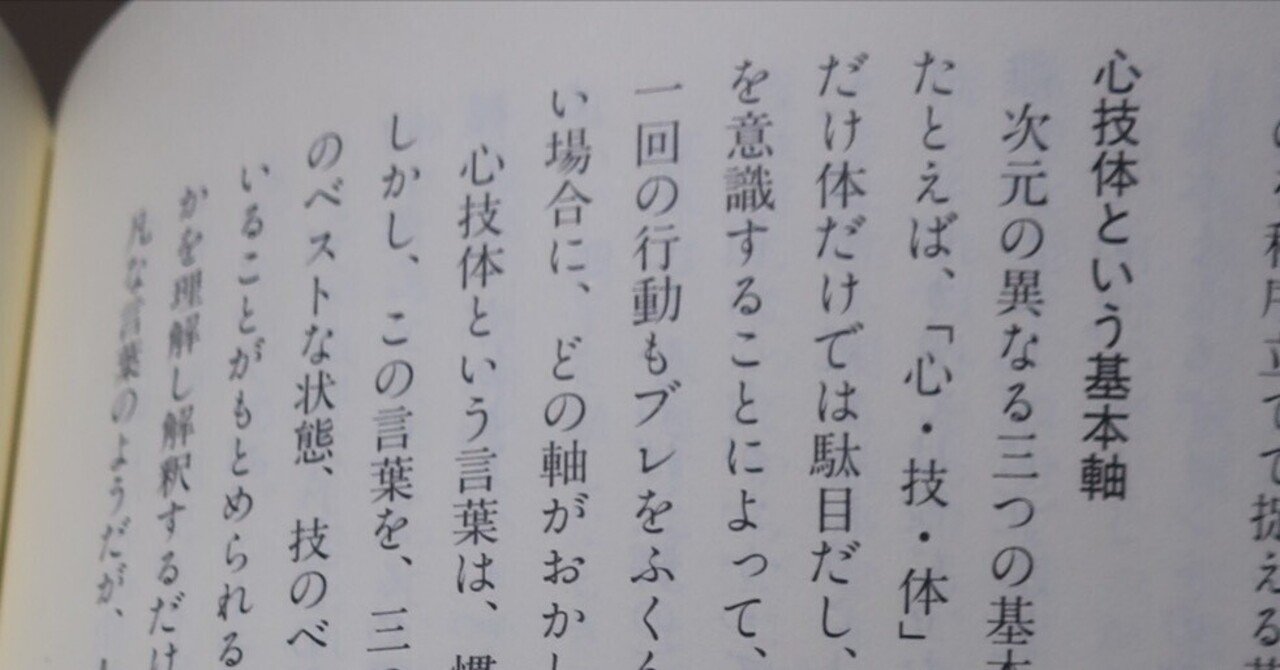 立てて捉える
心技体という基本軸
次元の異なる三つの基本
たとえば、「心・技・体」
だけ体だけでは駄目だし、
を意識することによって、
一回の行動もブレをふくん
い場合に、どの軸がおかし
心技体という言葉は、慣
しかし、この言葉を、三つ
のベストな状態、技のべ
いることがもとめられる
かを理解し解釈するだけ
凡な言葉のようだが、